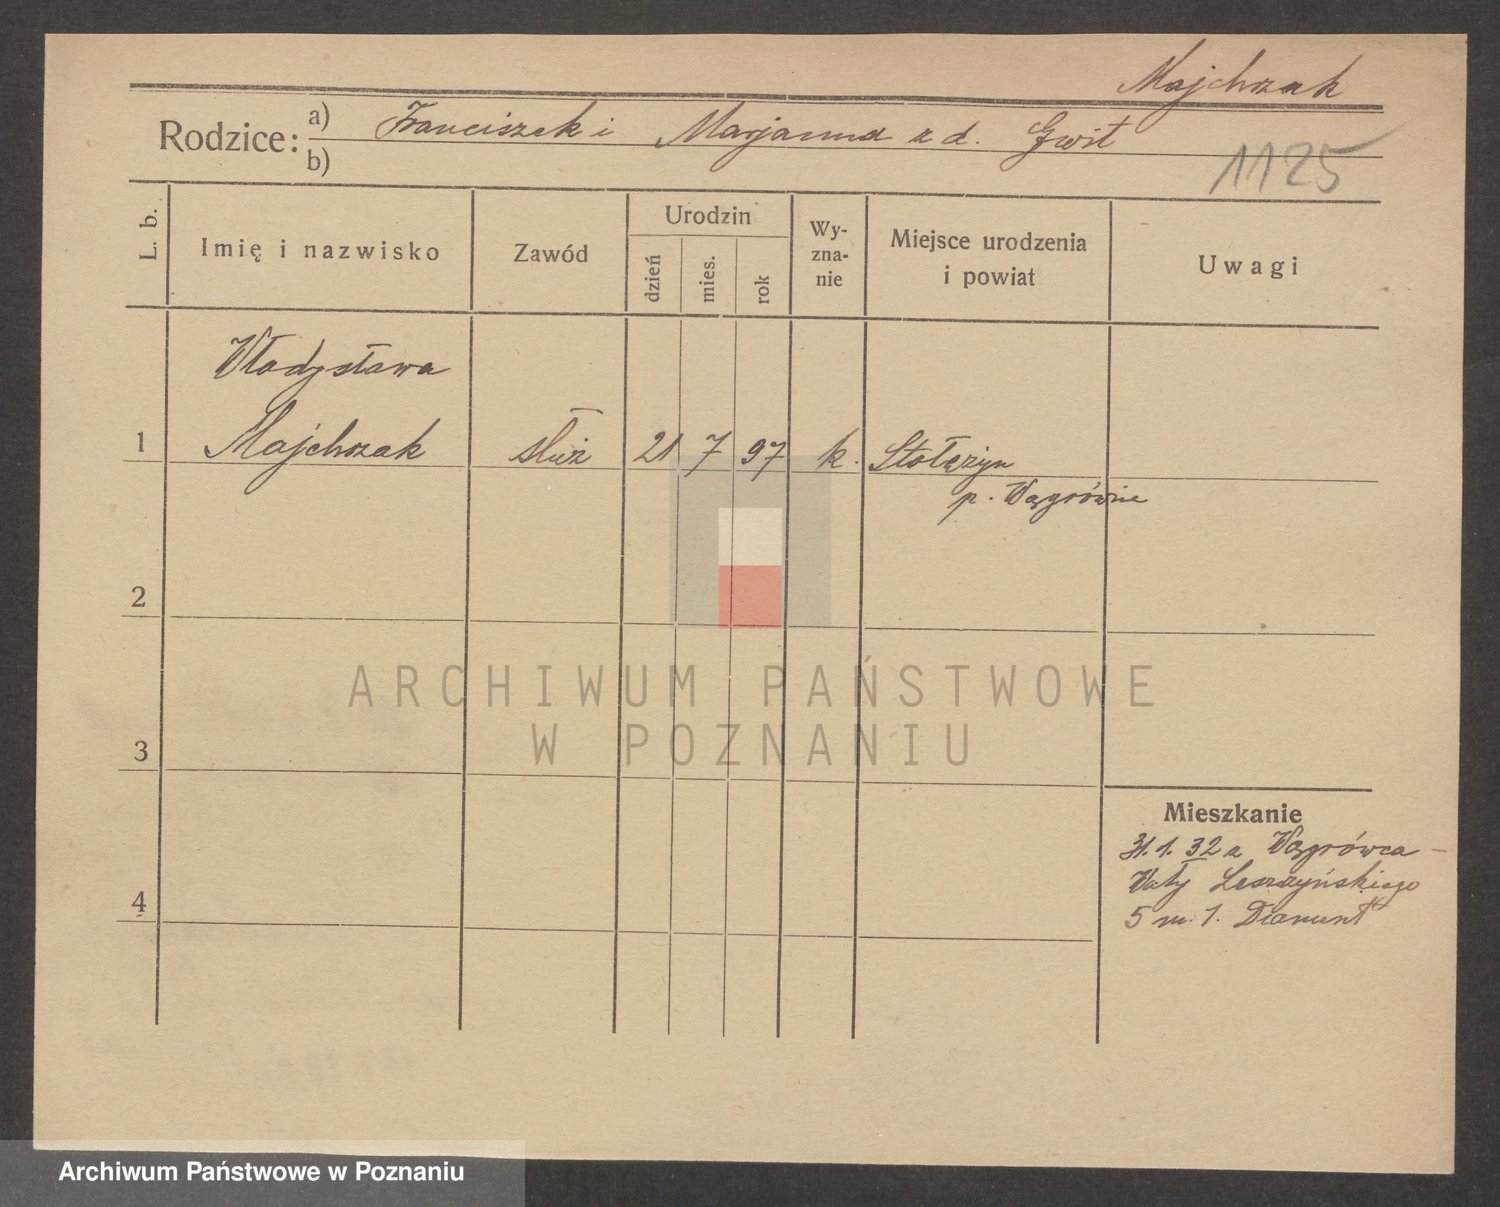 Majchrzak
Rodzice: a) Franciszek i Marjanna z d. Gwit
b)
1125
L. b.
Imię i nazwisko
Zawód
Urodzin
dzień
mies.
rok
Wy-
zna-
nie
Miejsce urodzenia
i powiat
Uwagi
Władysława
1 Majchrzak służ 21 7 97 k. Stołężyn
p. Wągrówiec
2
ARCHIWUM PAŃSTWOWE
W POZNANIU
3
Mieszkanie
31.1.32 z Wągrówca -
Wały Leszczyńskiego
5 m. 1. Diament
4
Archiwum Państwowe w Poznaniu